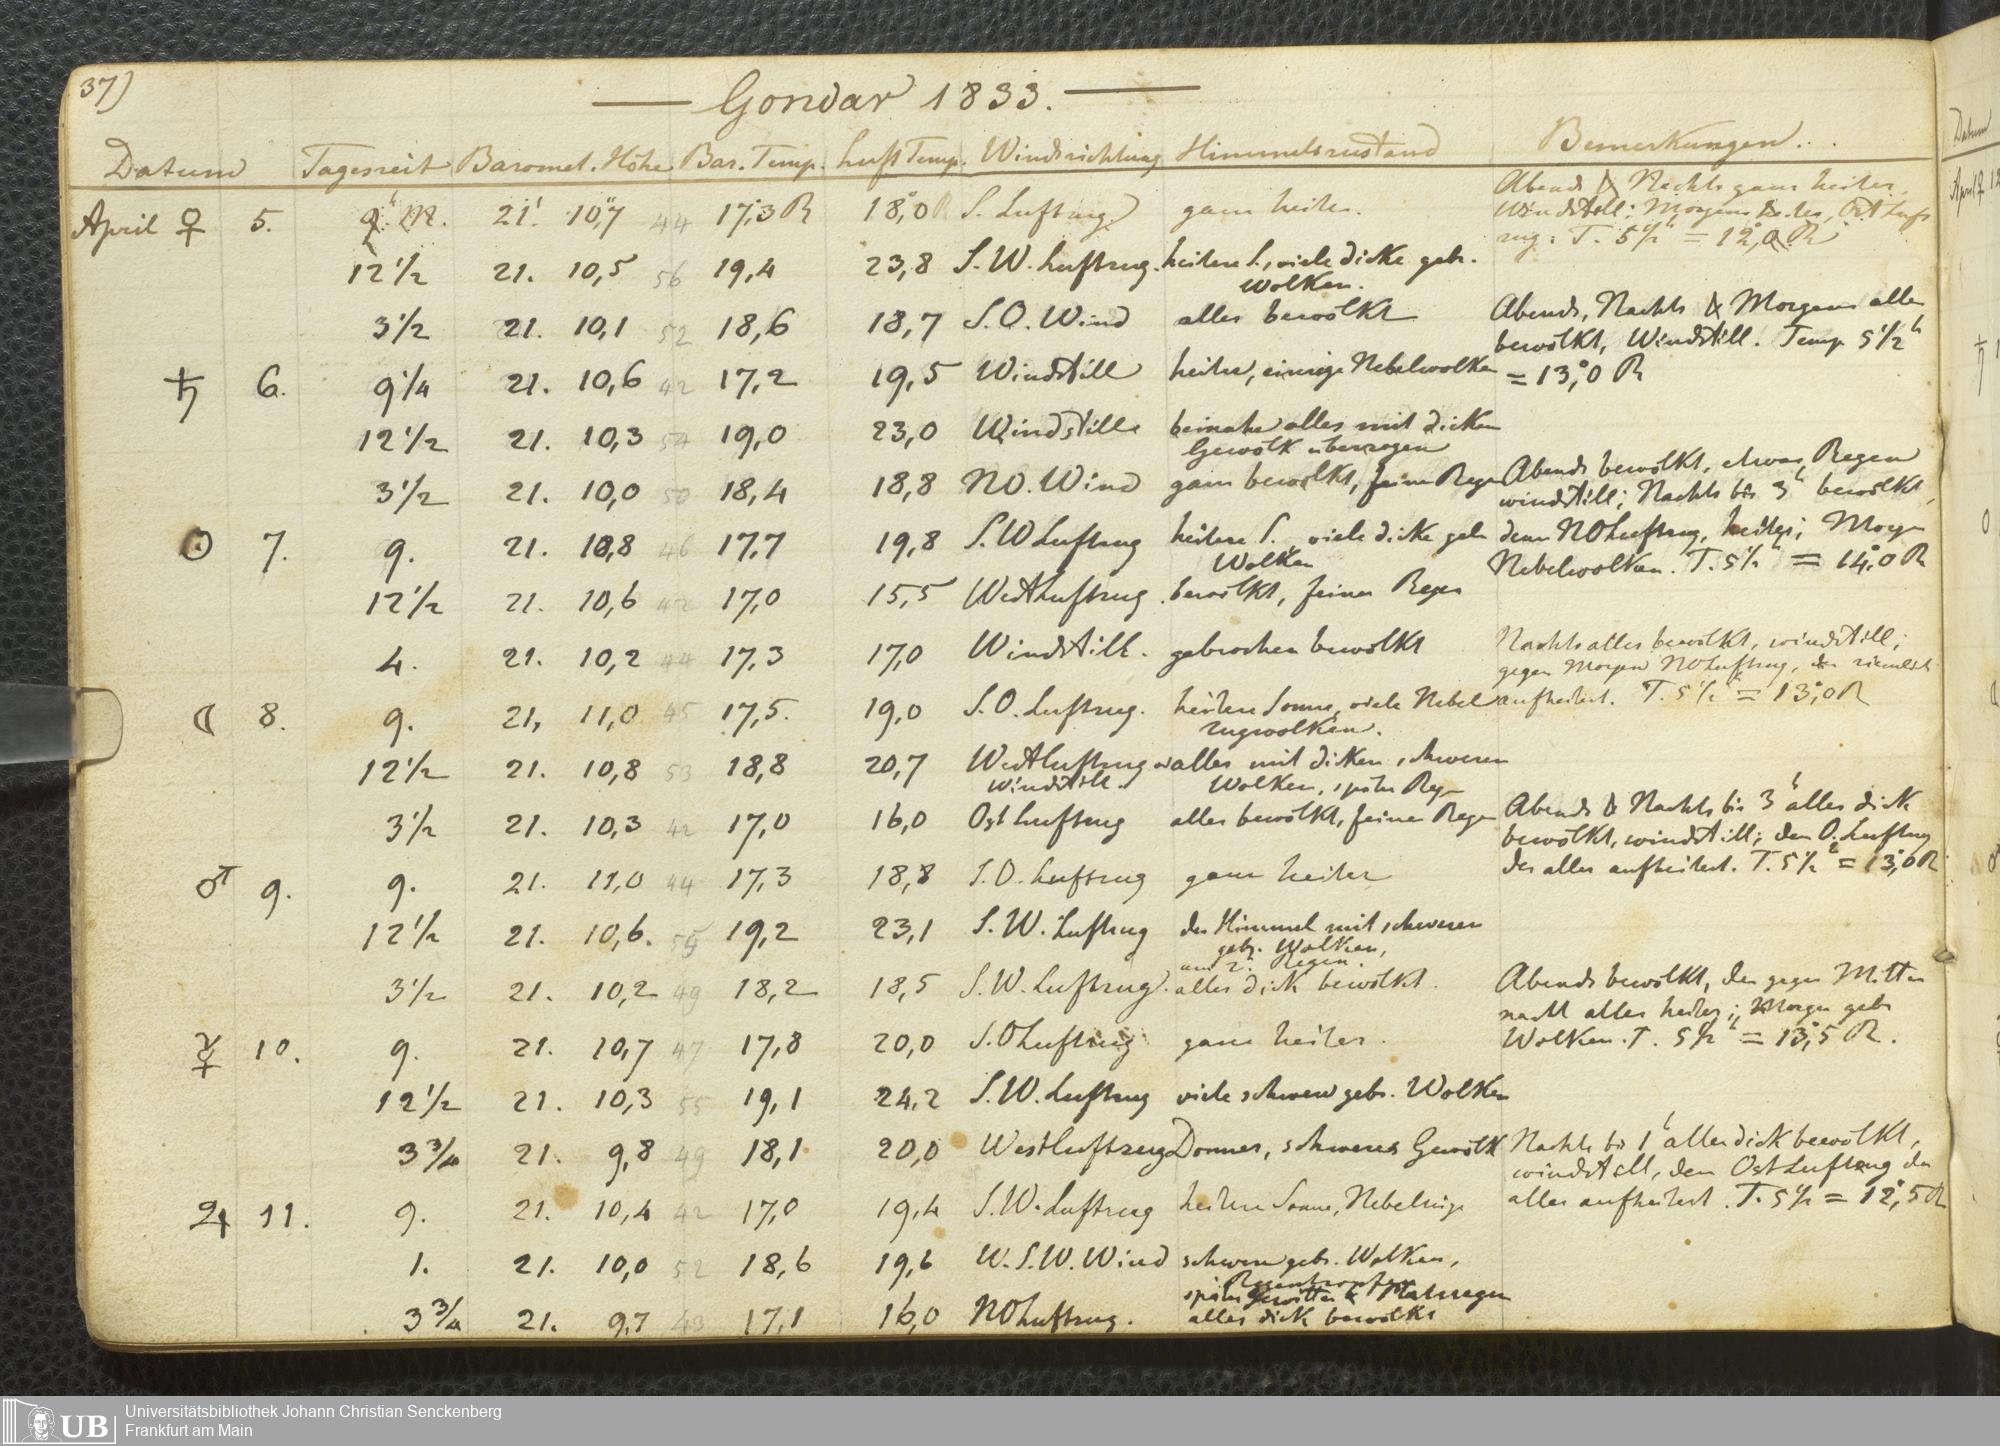 37)
Gondar 1833.
Datum Tageszeit Baromet. Höhe Bar. Temp. Luft Temp. Windrichtung Himmelszustand Bemerkungen.
April ♀ 5. 9h M. 21' 10,"7 44 17,°3 R 18,°0 R S. Luftzug. ganz heiter. Abends & Nachts ganz heiter,
Windstill; Morgens heiter, Ost Luft
zug: T. 5 1/2h = 12,°0 R
12 1/2 21. 10,5 56 19,4 23,8 S.W. Luftzug. heitere S., viele dicke gebr.
Wolken.
3 1/2 21. 10,1 52 18,6 18,7 S.O. Wind alles bewölkt Abends, Nachts & Morgens alles
bewölkt, Windstill. Temp. 5 1/2h
♄ 6. 9 1/4 21. 10,6 42 17,2 19,5 Windstill heiter, einige Nebelwolken = 13,°0 R
12 1/2 21. 10,3 54 19,0 23,0 Windstille beinahe alles mit dicken
Gewölk überzogen
3 1/2 21. 10,0 50 18,4 18,8 NO. Wind ganz bewölkt, feiner Regen Abends bewölkt, etwas Regen
windstill; Nachts bis 3h bewölkt,
☉ 7. 9. 21. 10,8 46 17,7 19,8 S.W Luftzug heitere S. viele dicke gebr. dann NO Luftzug, heiter; Morgen
Wolken Nebelwolken. T. 5 1/2h = 14,°0 R
12 1/2 21. 10,6 42 17,0 15,5 West Luftzug bewölkt, feiner Regen
4. 21. 10,2 44 17,3 17,0 Windstill. gebrochen bewölkt Nachts alles bewölkt, windstill;
gegen Morgen NO Luftzug, der ziemlich
☾ 8. 9. 21, 11,0 45 17,5. 19,0 S.O. Luftzug. heitere Sonne, viele Nebel aufheitert. T. 5 1/2h = 13,°0 R
zugwolken.
12 1/2 21. 10,8 53 18,8 20,7 West Luftzug alles mit dicken, schweren
windstill. Wolken, später Regen
3 1/2 21. 10,3 42 17,0 16,0 Ost Luftzug alles bewölkt, feiner Regen Abends & Nachts bis 3h alles dick
bewölkt, windstill; dann O. Luftzug
♂ 9. 9. 21. 11,0 44 17,3 18,8 S.O. Luftzug ganz heiter der alles aufheitert. T. 5 1/2h = 13,°0 R
12 1/2 21. 10,6. 55 19,2 23,1 S.W. Luftzug der Himmel mit schweren
gebr. Wolken,
um 2h Regen.
3 1/2 21. 10,2 49 18,2 18,5 S.W. Luftzug. alles dick bewölkt. Abends bewölkt, der gegen Mitter
nacht alles heiter; Morgen gebr.
☿ 10. 9. 21. 10,7 47 17,8 20,0 S.O Luftzug ganz heiter. Wolken. T. 5 1/2h = 13,°5 R.
12 1/2 21. 10,3 55 19,1 24,2 S.W. Luftzug viele schwere gebr. Wolken
3 3/4 21. 9,8 49 18,1 20,0 West Luftzug Donner, schweres Gewölk Nachts bis 1h alles dick bewölkt,
windstill, dann Ost Luftzug der
♃ 11. 9. 21. 10,4 42 17,0 19,4 S.W. Luftzug heitere Sonne, Nebelzüge alles aufheitert. T. 5 1/2 = 12,°5 R
1. 21. 10,0 52 18,6 19,6 W.S.W. Wind schwere gebr. Wolken,
Regentropfen
später Gewitter & Platzregen
3 3/4 21. 9,7 43 17,1 16,0 NO Luftzug. alles dick bewölkt
UB
Universitätsbibliothek Johann Christian Senckenberg
Frankfurt am Main